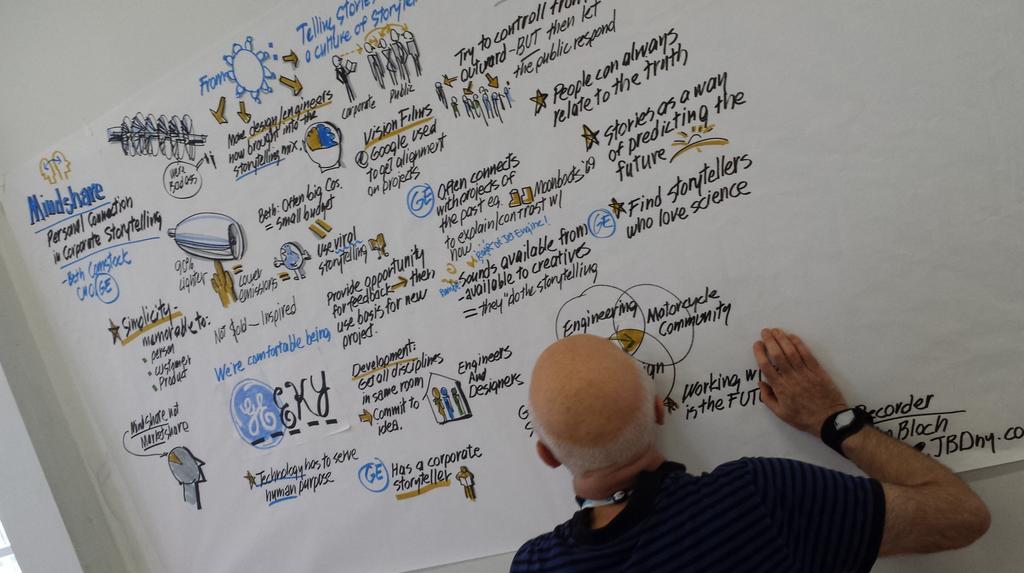 Mindshare
Personal Connection
in Corporate Storytelling
- Beth Comstock
CMO GE
Simplicity
memorable to:
• person
• customer
• Product
Mindshare not
Marketshare
From
Telling Stories
a culture of
More design/engineers
now brought into the
storytelling mix.
corporate
Public
Vision Films
Google used
to get alignment
on projects
Try to controll from
outward - BUT then let
the public respond
People can always
relate to the truth
Stories as a way
of predicting the
future
Find storytellers
who love science
90%
Lighter
= Lower
emissions
Beth: Often big Cos.
= small budget
Use viral
storytelling
Not Told - Inspired
GE
Often connects
with projects of
the past eg. Moonboots '69
to explain/contrast w/
now...
GE
Provide opportunity
for feedback → then
use basis for new
project.
Sounds available from
- available to creatives
= they "do the storytelling
We're comfortable being
GEEKY
Technology has to serve
human purpose
Development:
Get all disciplines
in same room
Commit to
idea.
Engineers
And
Designers
GE
Has a corporate
storyteller
Engineering
Motorcycle
Community
Working
is the
Bloch
JBDny.co